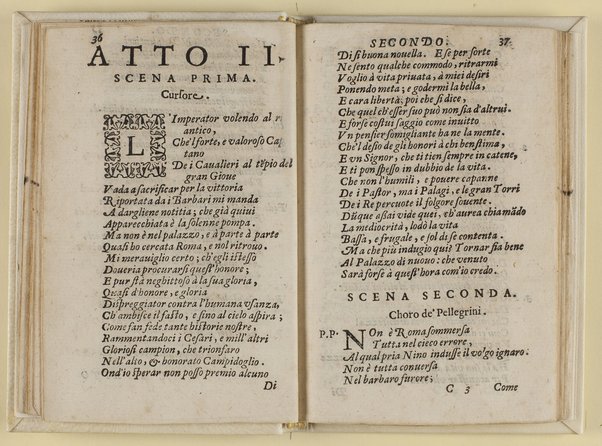 36
ATTO II
SCENA PRIMA.
Cursore.
L'Imperator volendo al rito
antico,
Che'l forte, e valoroso Cap
tano
De i Caualieri al tẽpio del
gran Gioue
Vada a sacrificar per la vittoria
Riportata da i Barbari mi manda
A dargliene notitia; che già quiui
Apparecchiata è la solenne pompa.
Ma non è nel palazzo, e à parte à parte
Quasi ho cercata Roma, e nol ritrouo.
Mi merauiglio certo; ch'egli istesso
Doueria procurarsi quest'honore;
E pur stà neghittoso à la sua gloria,
Quasi d'honore, e gloria
Dispreggiator contra l'humana vsanza,
Ch'ambisce il fasto, e sino al cielo aspira;
Come fan fede tante historie nostre,
Rammentandoci i Cesari, e mill'altri
Gloriosi campion, che trionfaro
Nell'alto, & honorato Campidoglio.
Ond'io sperar non posso premio alcuno
Di
SECONDO. 37
Di sì buona nouella. E se per sorte
Ne sento qualche commodo, ritrarmi
Voglio à vita priuata, à miei desiri
Ponendo meta; e godermi la bella,
E cara libertà, poi che si dice,
Che quel ch'esser suo può non sia d'altrui.
E forse costui saggio come inuitto
Vn pensier somigliante ha ne la mente.
Che'l desio de gli honori à chi ben stima,
E vn Signor, che ti tien sempre in catene,
E ti pon spesso in dubbio de la vita.
Che non l'humili, e pouere capanne
De i Pastor, ma i Palagi, e le gran Torri
De i Re percuote il folgore souente.
Dũque assai vide quei, ch'aurea chiamãdo
La mediocrità, lodò la vita
Bassa, e frugale, e sol di se contenta.
Ma che più indugio qui? Tornar sia bene
Al Palazzo di nuouo: che venuto
Sarà forse à quest'hora com'io credo.
SCENA SECONDA.
Choro de' Pellegrini.
P.P. Non è Roma sommersa
Tutta nel cieco errore,
Al qual pria Nino indusse il volgo ignaro:
Non è tutta conuersa
Nel barbaro furore;
C 3 Come